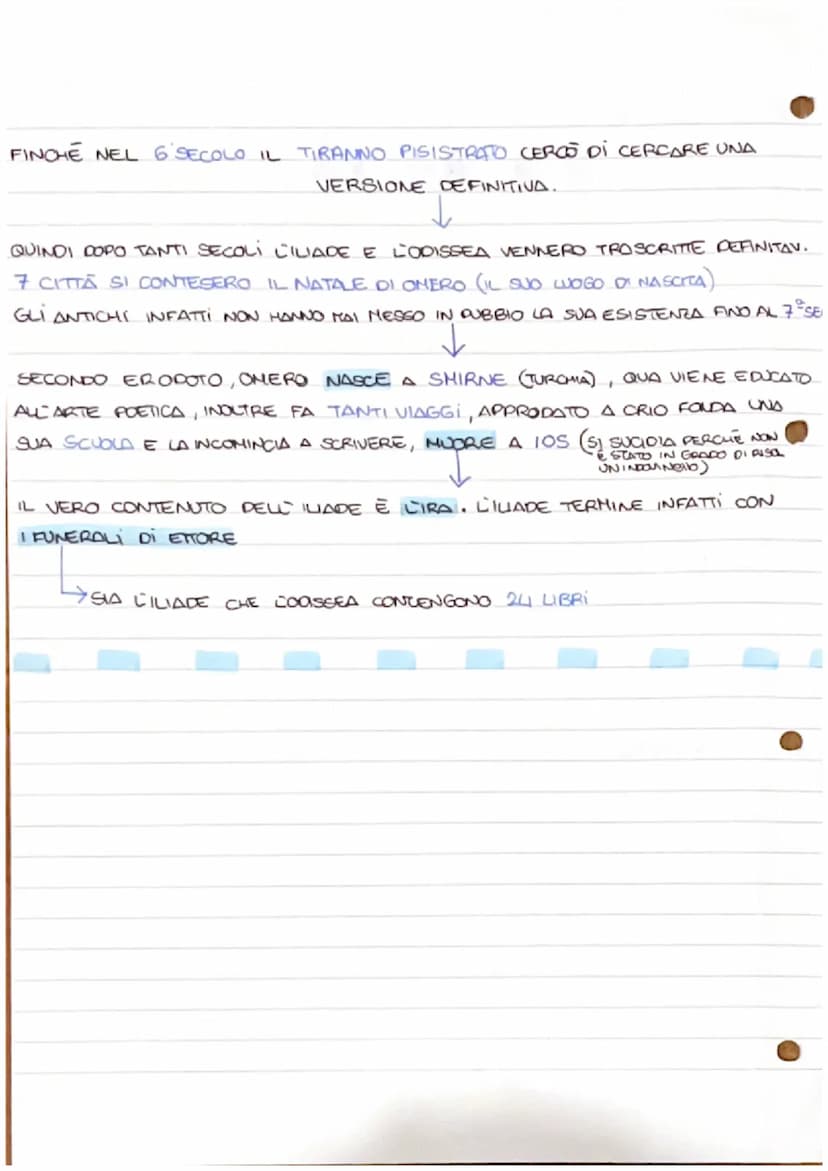 FINCHÉ NEL 6° SECOLO IL TIRANNO PISISTRATO CERCÒ DI CERCARE UNA
VERSIONE DEFINITIVA.
QUINDI DOPO TANTI SECOLI L'ILIADE E L'ODISSEA VENNERO TRASCRITTE DEFINITAV.
7 CITTÀ SI CONTESERO IL NATALE DI OMERO (IL SUO LUOGO DI NASCITA)
GLI ANTICHI INFATTI NON HANNO MAI MESSO IN DUBBIO LA SUA ESISTENZA FINO AL 7° SE
SECONDO ERODOTO, OMERO NASCE A SMIRNE (TURCHIA), QUA VIENE EDUCATO
ALL'ARTE POETICA, INOLTRE FA TANTI VIAGGI, APPRODATO A CRIO FONDA UNA
SUA SCUOLA E LA INCOMINCIA A SCRIVERE, MUORE A IOS (SI SUCIDIA PERCHÉ NON
È STATO IN GRADO DI RISOL
UN INDOVINELLO)
IL VERO CONTENUTO DELL'ILIADE È L'IRA. L'ILIADE TERMINE INFATTI CON
I FUNERALI DI ETTORE
SIA L'ILIADE CHE L'ODISSEA CONTENGONO 24 LIBRI